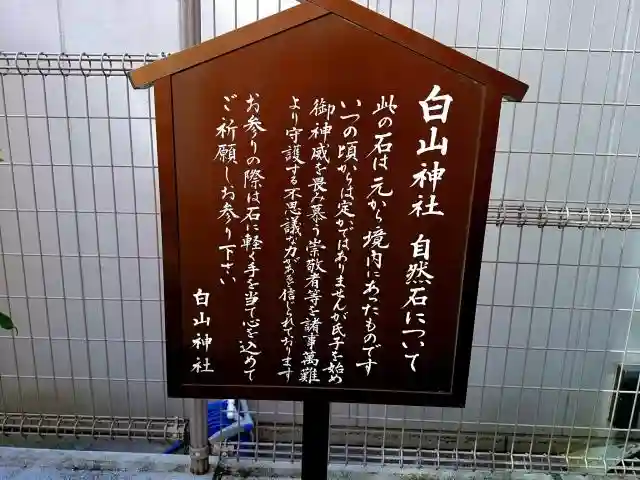 白山神社 自然石について
此の石は元から境内にあったものです
いつの頃からは定かではありませんが氏子を始め
御神威を畏み慕う崇敬者等を諸事萬難
より守護する不思議な力があると信じられております
お参りの際は石に軽く手を当て心を込めて
ご祈願しお参り下さい
白山神社